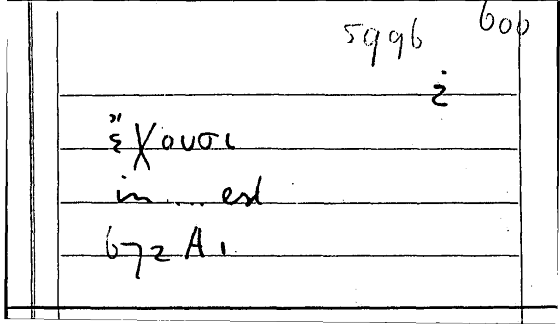 5996 600
ἔχουσι
in .... est
672 A 1